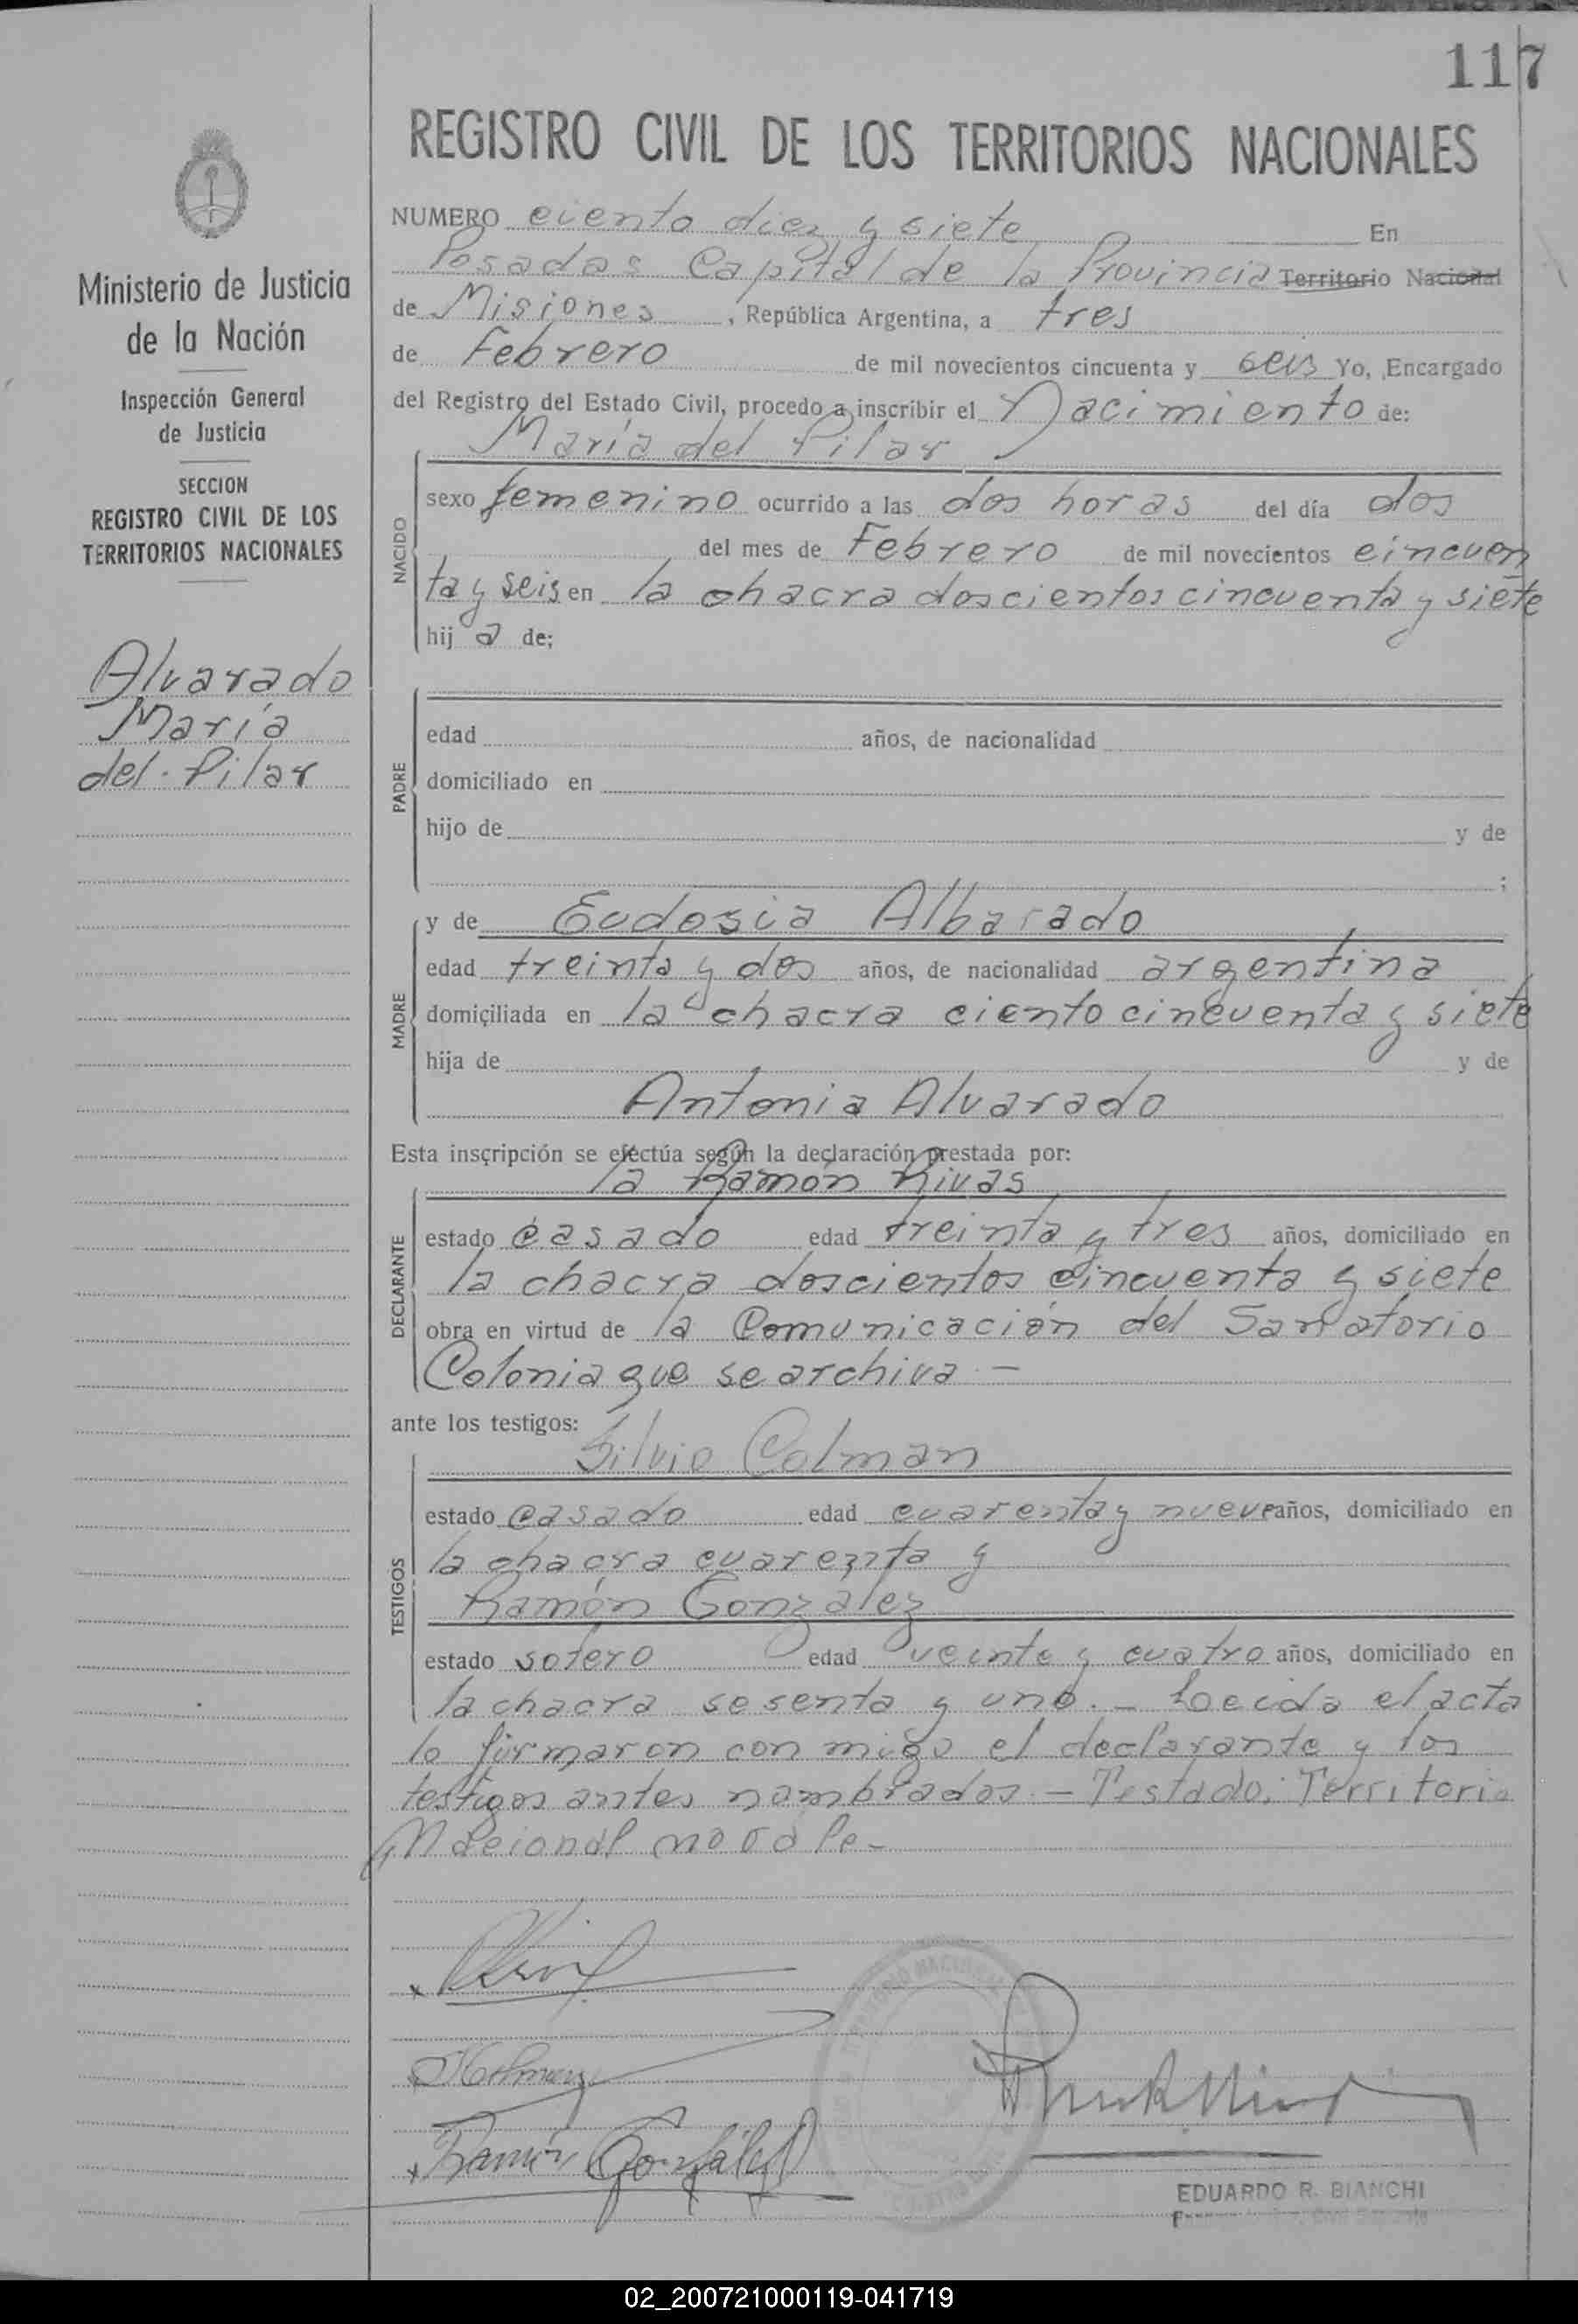 117
REGISTRO CIVIL DE LOS TERRITORIOS NACIONALES
Ministerio de Justicia
de la Nación
Inspección General
de Justicia
SECCION
REGISTRO CIVIL DE LOS
TERRITORIOS NACIONALES
Alvarado
María
del Pilar
NUMERO ciento diez y siete En
Posadas Capital de la Provincia Territorio Nacional
de Misiones, República Argentina, a tres
de Febrero de mil novecientos cincuenta y seis Yo, Encargado
del Registro del Estado Civil, procedo a inscribir el Nacimiento de:
María del Pilar
NACIDO
sexo femenino ocurrido a las dos horas del día dos
del mes de Febrero de mil novecientos cincuen
ta y seis en la chacra doscientos cincuenta y siete
hija de;
PADRE
edad años, de nacionalidad
domiciliado en
hijo de y de
;
MADRE
y de Eudosia Albarado
edad treinta y dos años, de nacionalidad argentina
domiciliada en la chacra ciento cincuenta y siete
hija de y de
Antonia Alvarado
Esta inscripción se efectúa según la declaración prestada por:
DECLARANTE
la Ramón Rivas
estado casado edad treinta y tres años, domiciliado en
la chacra doscientos cincuenta y siete
obra en virtud de la Comunicación del Sanatorio
Colonia que se archiva.—
ante los testigos:
TESTIGOS
Silvio Colman
estado casado edad cuarenta y nueve años, domiciliado en
la chacra cuarenta y
Ramón González
estado sotero edad veinte y cuatro años, domiciliado en
la chacra sesenta y uno.— Leeida el acta
lo firmaron con migo el declarante y los
testigos antes nombrados.— Testado: Territorio
Nacional no vale-
Ramón González
EDUARDO R. BIANCHI
02_200721000119-041719